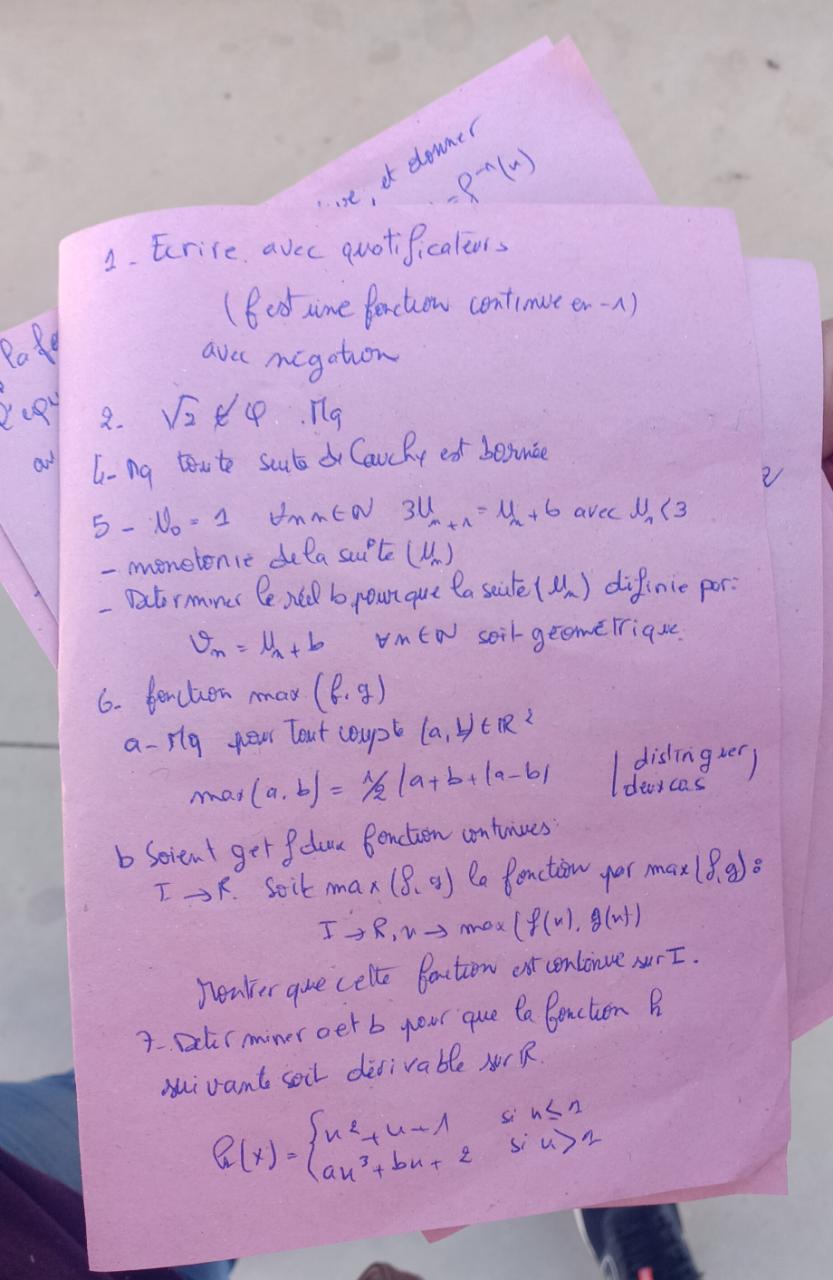 ive, et donner
= f⁻¹(x)
1- Ecrire avec quotificateurs
(f est une fonction continue en -1)
avec négation
2. √2 ∉ Q . Mq
4- Mq toute suite de Cauchy est bornée
5 - U₀ = 1 ∀n n ∈ N 3Uₙ₊₁ = Uₙ + 6 avec Uₙ < 3
- monotonie de la suite (Uₙ)
- Determiner le réel b pour que la suite (Uₙ) difinie par:
Vₙ = Uₙ + b ∀n ∈ N soit géométrique.
6- fonction max (f, g)
a- Mq pour Tout couple (a, b) ∈ IR²
max(a, b) = 1/2 (a+b+|a-b| | distinguer,
deux cas
b Soient g et f deux fonction continues:
I → R. Soit max (f, g) la fonction par max (f, g) :
I → R, x → max (f(x), g(x))
Montrer que cette fonction est continue sur I.
7- Determiner a et b pour que la fonction h
suivante soit dérivable sur R.
h(x) = { x² + x - 1 si x ≤ 1
ax³ + bx + 2 si x > 1